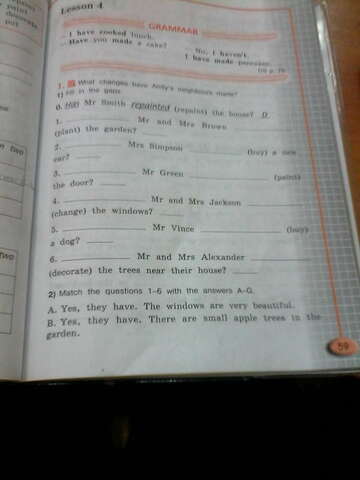 Lesson 4
GRAMMAR
– I have cooked lunch.
– Have you made a cake?
– No, I haven't.
I have made pancakes.
1. What changes have Andy's neighbours made?
1) Fill in the gaps.
0. Has Mr Smith repainted (repaint) the house? D
1. Mr and Mrs Brown
(plant) the garden?
2. Mrs Simpson (buy) a new
car?
3. Mr Green (paint)
the door?
4. Mr and Mrs Jackson
(change) the windows?
5. Mr Vince (buy)
a dog?
6. Mr and Mrs Alexander
(decorate) the trees near their house?
2) Match the questions 1–6 with the answers A–G.
A. Yes, they have. The windows are very beautiful.
B. Yes, they have. There are small apple trees in the
garden.
59